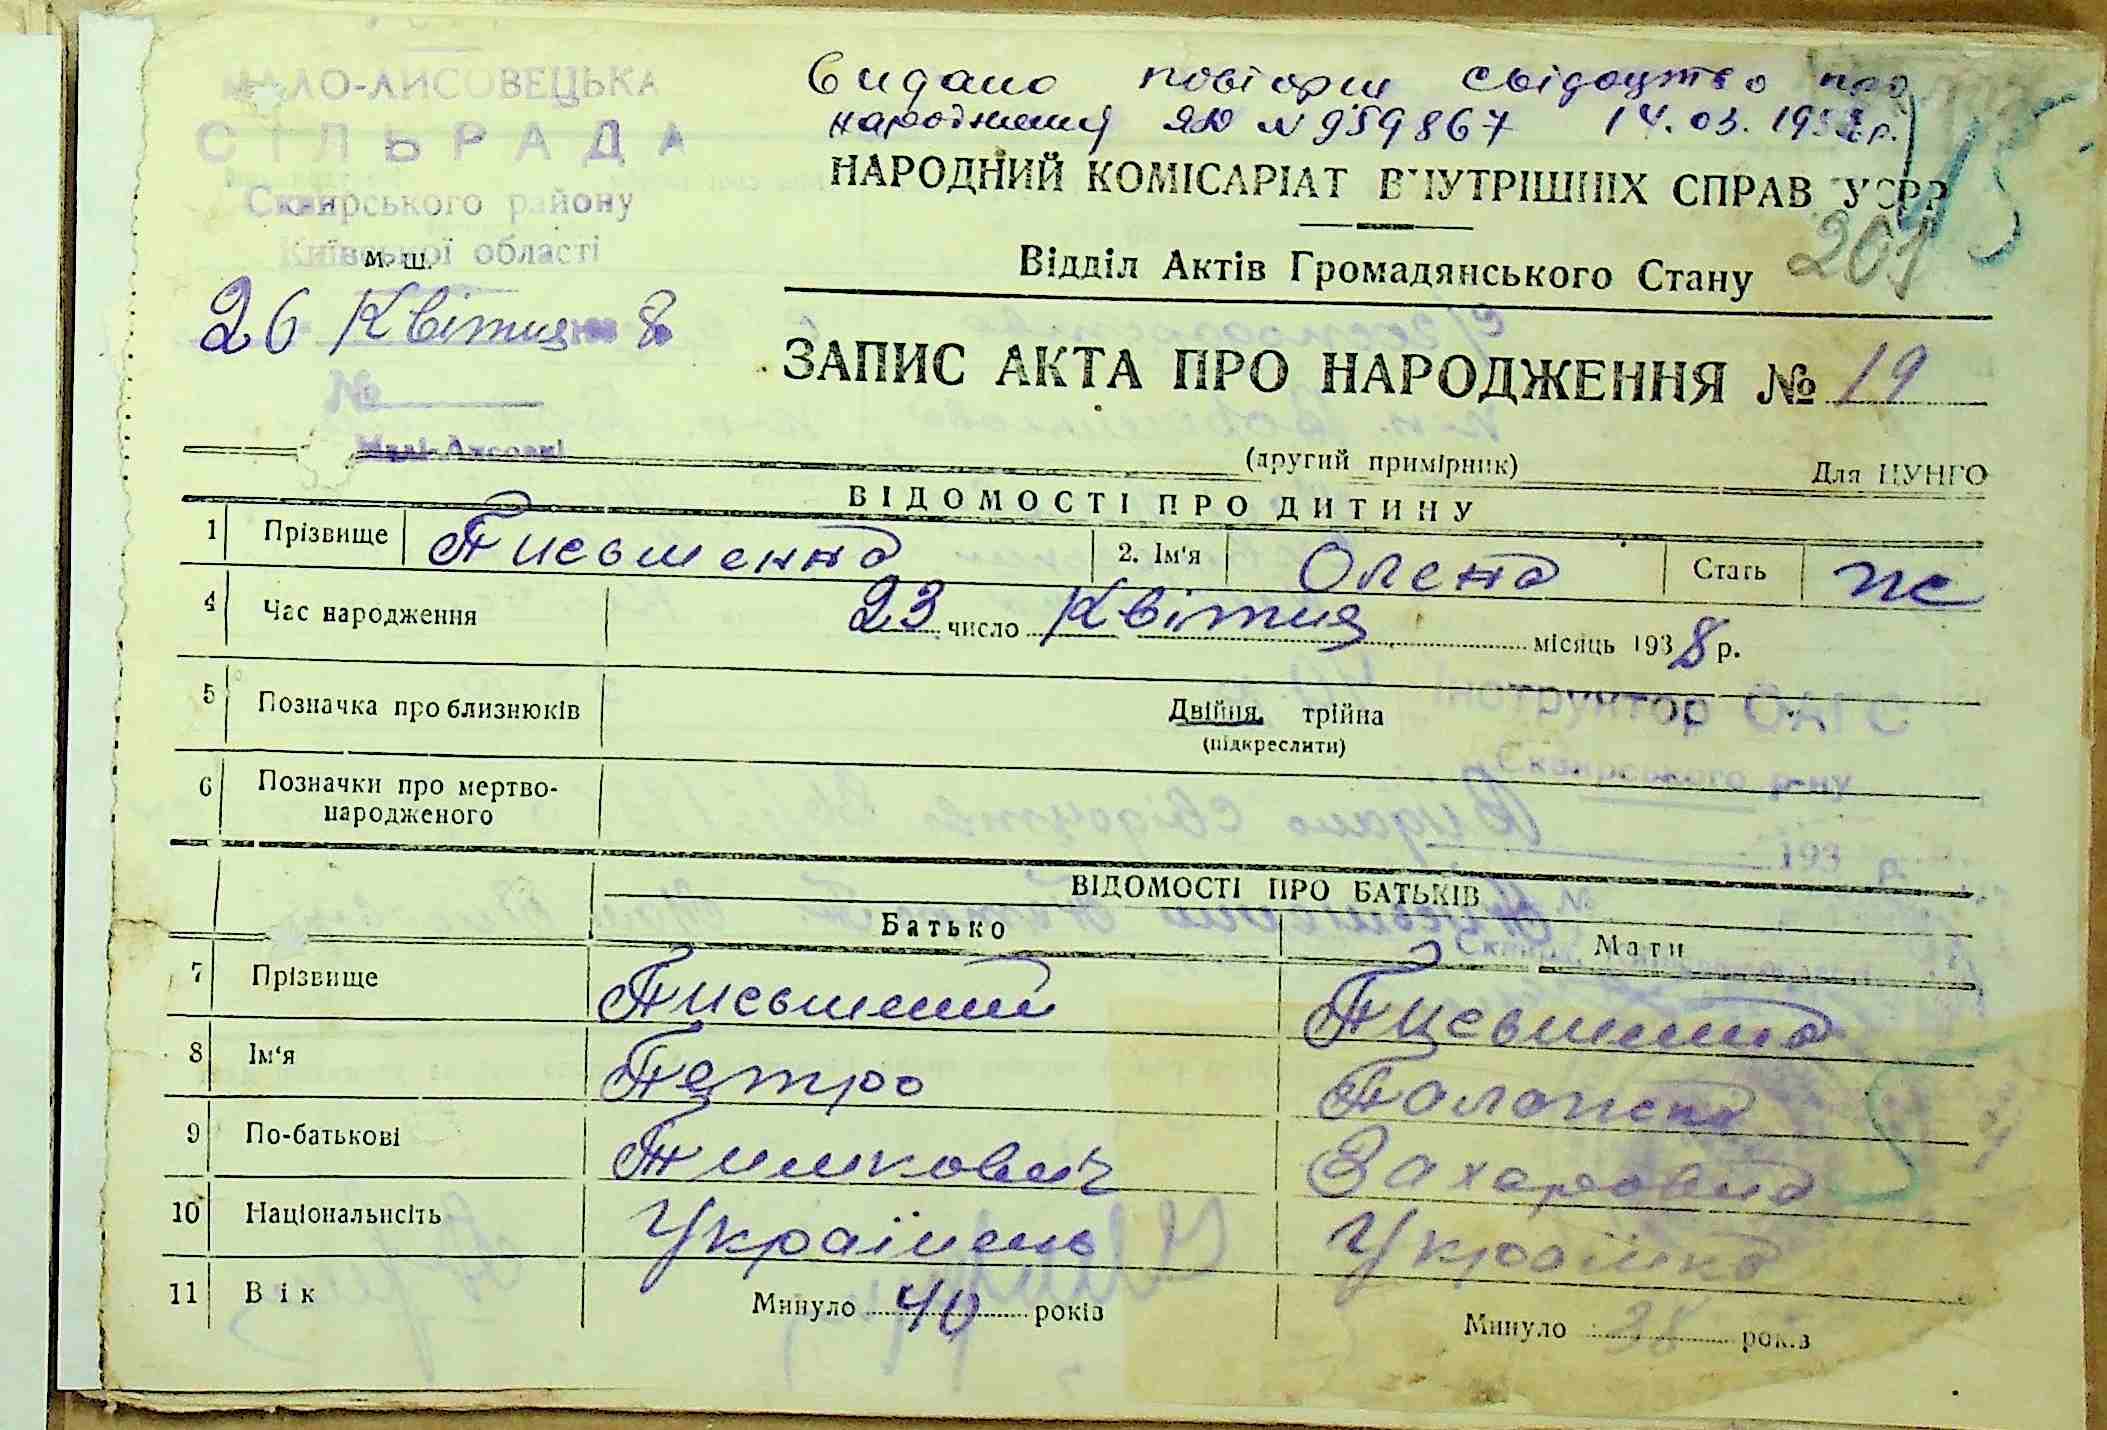 МАЛО-ЛИСОВЕЦЬКА
СІЛЬРАДА
Сквирського району
Київської області
м. ш.
26 Квітня 8
№
Малі-Лисовці
Видано повторн свідоцтво про
народження ЯЮ № 959867 14.03.195 р.
НАРОДНИЙ КОМІСАРІАТ ВНУТРІШНІХ СПРАВ УСРР
15
201
Відділ Актів Громадянського Стану
ЗАПИС АКТА ПРО НАРОДЖЕННЯ № 19
(другий примірник) Для ЦУНГО
ВІДОМОСТІ ПРО ДИТИНУ
1 Прізвище Письменна 2. Ім'я Олена Стать ж
4 Час народження 23 число Квітня місяць 1938 р.
5 Позначка про близнюків Двійня, трійна
(підкреслити)
6 Позначки про мертво-
народженого
ВІДОМОСТІ ПРО БАТЬКІВ
Батько Мати
7 Прізвище Письменний Письменна
8 Ім'я Петро Палажка
9 По-батькові Тимкович Захаровна
10 Національність Українець Українка
11 Вік Минуло 40 років Минуло 38 років